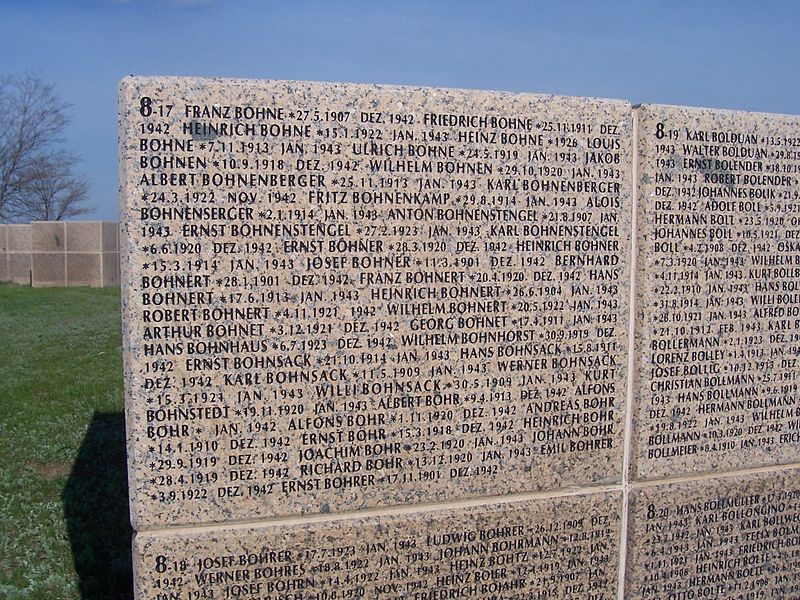 8-17 FRANZ BOHNE *27.5.1907 DEZ. 1942 FRIEDRICH BOHNE *25.11.1911 DEZ.
1942 HEINRICH BOHNE *15.1.1922 JAN. 1943 HEINZ BOHNE *1926 LOUIS
BOHNE *7.11.1913 JAN. 1943 ULRICH BOHNE *24.5.1919 JAN. 1943 JAKOB
BOHNEN *10.9.1918 DEZ. 1942 WILHELM BOHNEN *29.10.1920 JAN. 1943
ALBERT BOHNENBERGER *25.11.1913 JAN. 1943 KARL BOHNENBERGER
*24.3.1922 NOV. 1942 FRITZ BOHNENKAMP *29.8.1914 JAN. 1943 ALOIS
BOHNENSERGER *2.1.1914 JAN. 1943 ANTON BOHNENSTENGEL *21.8.1907 JAN.
1943 ERNST BOHNENSTENGEL *27.2.1923 JAN. 1943 KARL BOHNENSTENGEL
*6.6.1920 DEZ. 1942 ERNST BÖHNER *28.3.1920 DEZ. 1942 HEINRICH BÖHNER
*15.3.1914 JAN. 1943 JOSEF BÖHNER *11.3.1901 DEZ. 1942 BERNHARD
BÖHNERT *28.1.1901 DEZ. 1942 FRANZ BÖHNERT *20.4.1920 DEZ. 1942 HANS
BÖHNERT *17.6.1913 JAN. 1943 HEINRICH BÖHNERT *26.6.1904 JAN. 1943
ROBERT BÖHNERT *4.11.1921 1942 WILHELM BÖHNERT *20.5.1922 JAN. 1943
ARTHUR BOHNET *3.12.1921 DEZ. 1942 GEORG BOHNET *17.4.1911 JAN. 1943
HANS BOHNHAUS *6.7.1923 DEZ. 1942 WILHELM BOHNHORST *30.9.1919 DEZ.
1942 ERNST BOHNSACK *21.10.1914 JAN. 1943 HANS BOHNSACK *15.8.1911
DEZ. 1942 KARL BOHNSACK *11.5.1909 JAN. 1943 WERNER BOHNSACK
*15.3.1921 JAN. 1943 WILLI BOHNSACK *30.5.1909 JAN. 1943 KURT
BOHNSTEDT *19.11.1920 JAN. 1943 ALBERT BÖHR *9.4.1913 DEZ. 1942 ALFONS
BÖHR * JAN. 1942 ALFONS BÖHR *1.11.1920 DEZ. 1942 ANDREAS BÖHR
*14.1.1910 DEZ. 1942 ERNST BÖHR *15.3.1918 DEZ. 1942 HEINRICH BÖHR
*29.9.1919 DEZ. 1942 JOACHIM BÖHR *23.2.1920 JAN. 1943 JOHANN BÖHR
*28.4.1919 DEZ. 1942 RICHARD BOHR *13.12.1920 JAN. 1943 EMIL BOHRER
*3.9.1922 DEZ. 1942 ERNST BOHRER *17.11.1901 DEZ. 1942
8-18 JOSEF BOHRER *17.7.1923 JAN. 1943 LUDWIG BOHRER *26.12.1909 DEZ.
1942 WERNER BOHRES *18.8.1922 JAN. 1943 JOHANN BOHRMANN *12.8.1919
JAN. 1943 JOSEF BOHRN *14.4.1922 JAN. 1943 HEINZ BOHTZ *12.7.1922 JAN.
*10.8.1920 NOV. 1942 HEINZ BOIER *12.4.1919 JAN. 1943
FRIEDRICH BOJAHR *21.9.1907 JAN.
8-19 KARL BOLDUAN *13.5.1922
1943 WALTER BOLDUAN *29.8.19
1943 ERNST BOLENDER *18.10
JAN. 1943 ROBERT BOLENDER
DEZ. 1942 JOHANNES BOLIK
DEZ. 1942 ADOLF BOLL *5.9.1921
HERMANN BOLL *23.5.1920
JOHANNES BOLL *10.5.1921 DEZ.
BOLL *4.7.1908 DEZ. 1942 OSKA
*7.3.1920 JAN. 1943 WILHELM
*4.11.1914 JAN. 1943 KURT BOLLB
*22.2.1910 JAN. 1943 HANS BOL
*31.8.1914 JAN. 1943 WILLI BOLLE
*26.10.1921 JAN. 1943 ALFRED BO
*21.10.1912 FEB. 1943 KARL
BOLLERMANN *2.1.1923 DEZ.
LORENZ BOLLEY *1.4.1913 JAN.
JOSEF BOLLIG *10.12.1913 DEZ.
CHRISTIAN BOLLMANN *25.7.1911
1943 HANS BOLLMANN *9.6.1919
DEZ. 1942 HERMANN BOLLMANN
*19.8.1922 JAN. 1943 WILHELM
BOLLMANN *10.3.1920 DEZ. 1942
BOLLMEIER *8.4.1910 JAN. 1943 ERIC
8-20 HANS BOLLMÜLLER *17.3.1920
JAN. 1943 KARL BOLLONGINO
*23.2.1942 JAN. 1943 KARL BOLLWEG
*6.4.1913 JAN. 1943 FELIX BOLM
*1.11.1921 JAN. 1943 FRIEDRICH BO
*10.4.1908 JAN. 1943 HEINRICH BOLTE
JAN. 1943 HERMANN BOLTE
OTTO BOLTE